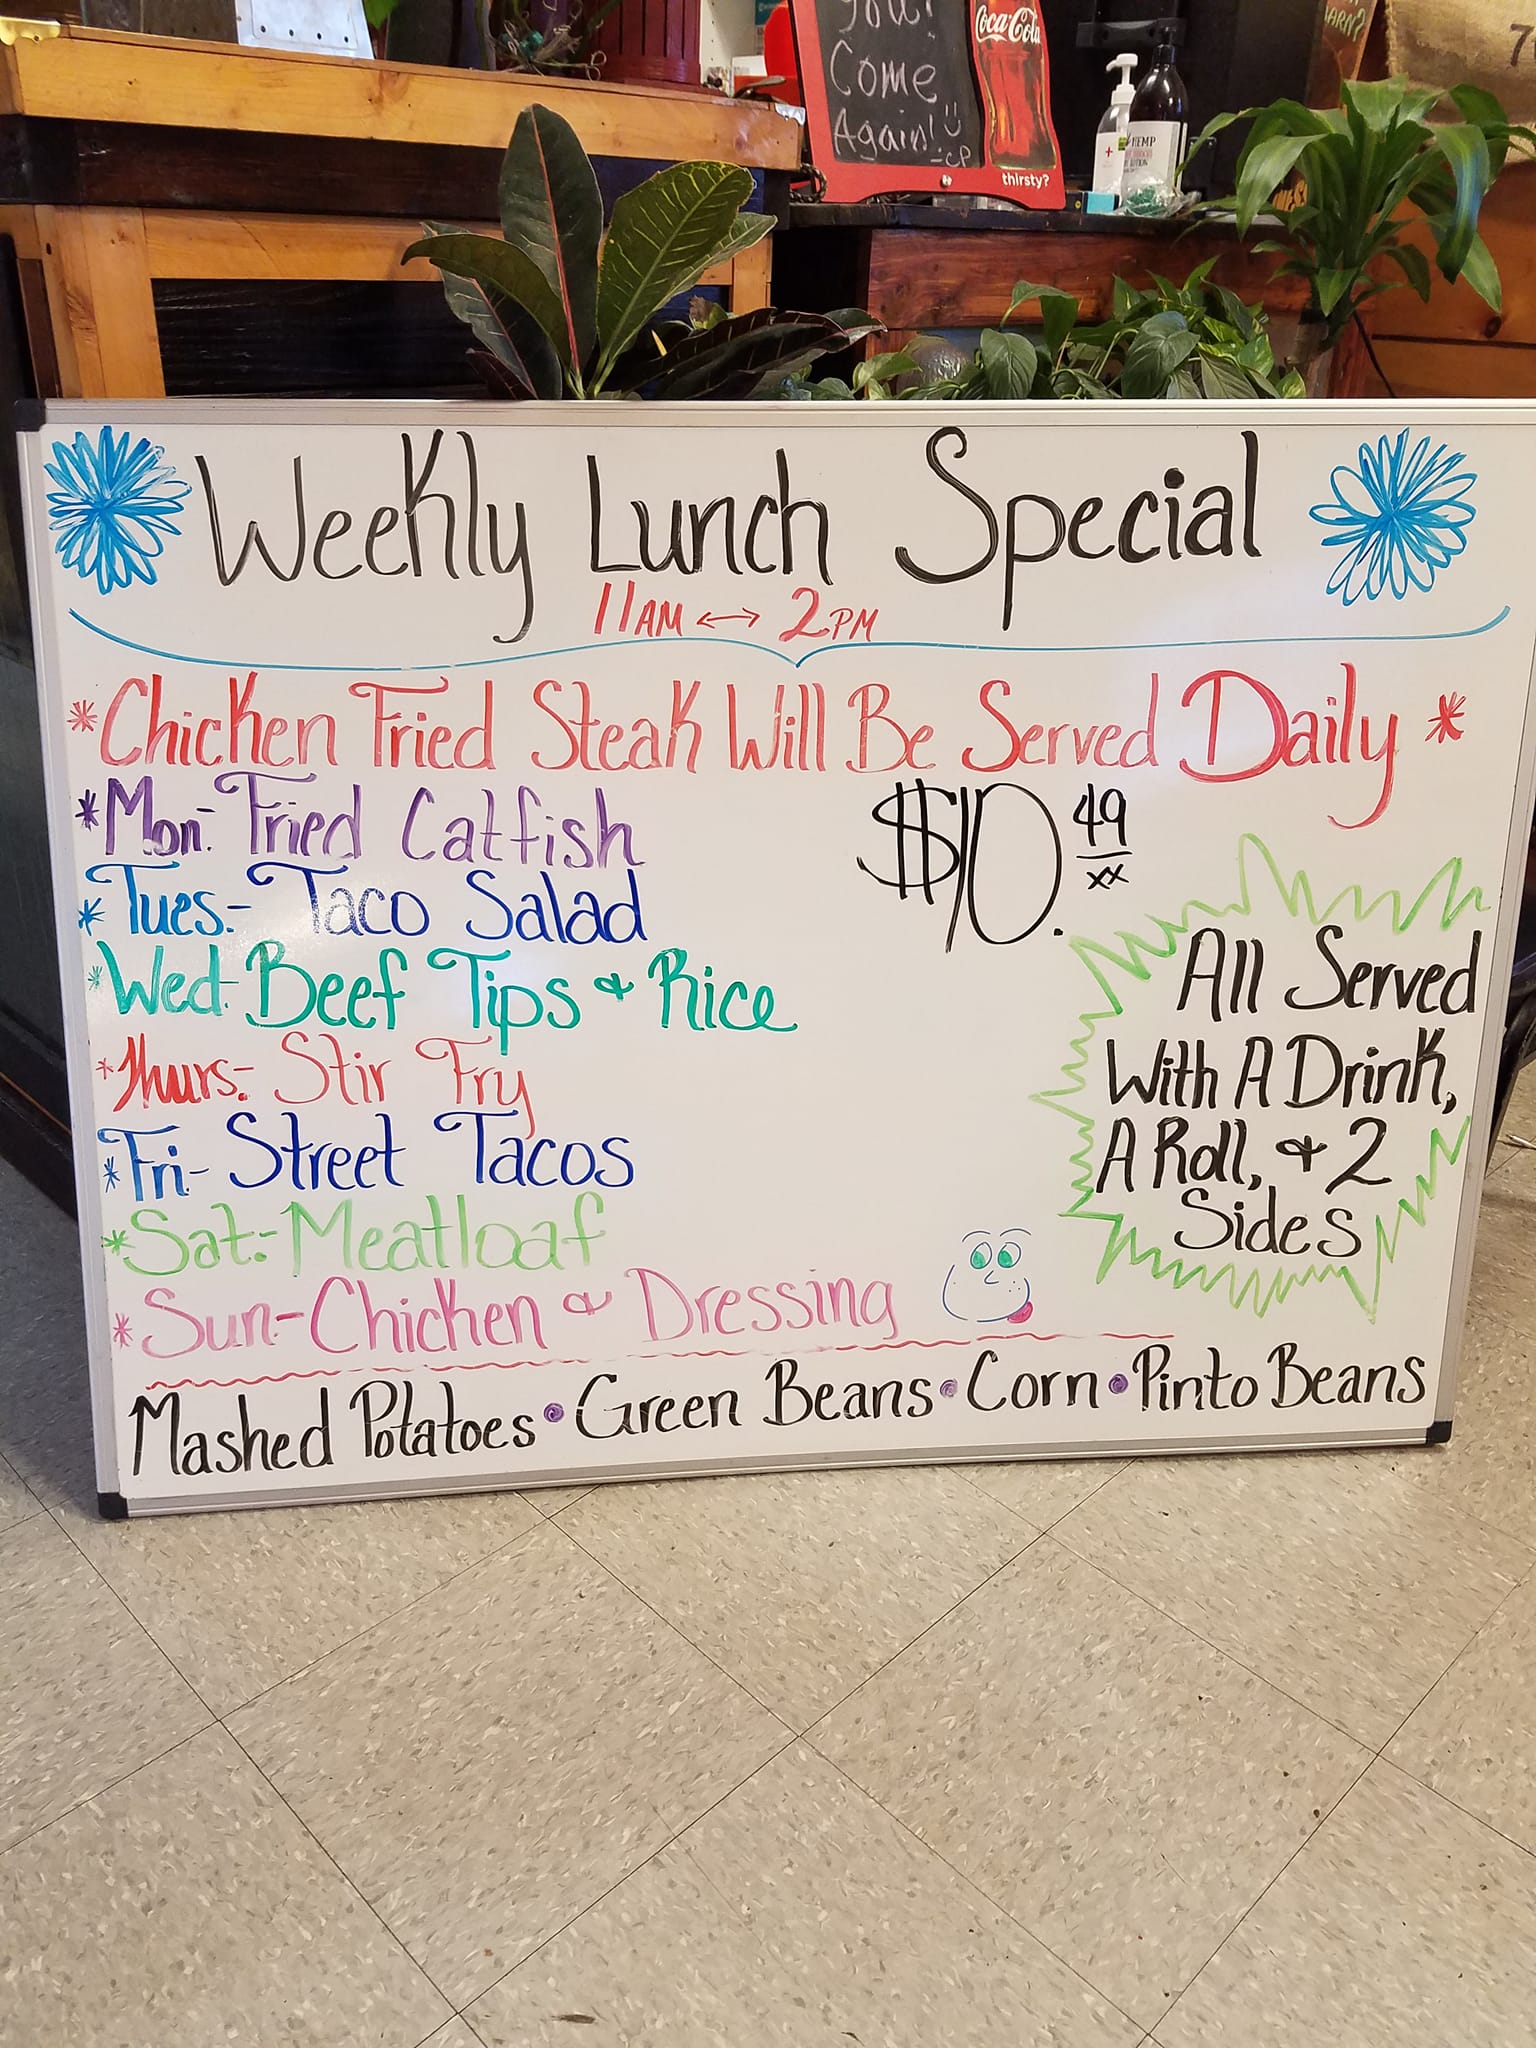 Come
Again!
Coca-Cola
thirsty?
HEMP
Weekly Lunch Special
11AM ↔ 2PM
*Chicken Fried Steak Will Be Served Daily*
*Mon- Fried Catfish
$10.49/xx
*Tues- Taco Salad
*Wed- Beef Tips & Rice
*Thurs- Stir Fry
*Fri- Street Tacos
*Sat- Meatloaf
*Sun- Chicken & Dressing
All Served
With A Drink,
A Roll, & 2
Sides
Mashed Potatoes • Green Beans • Corn • Pinto Beans